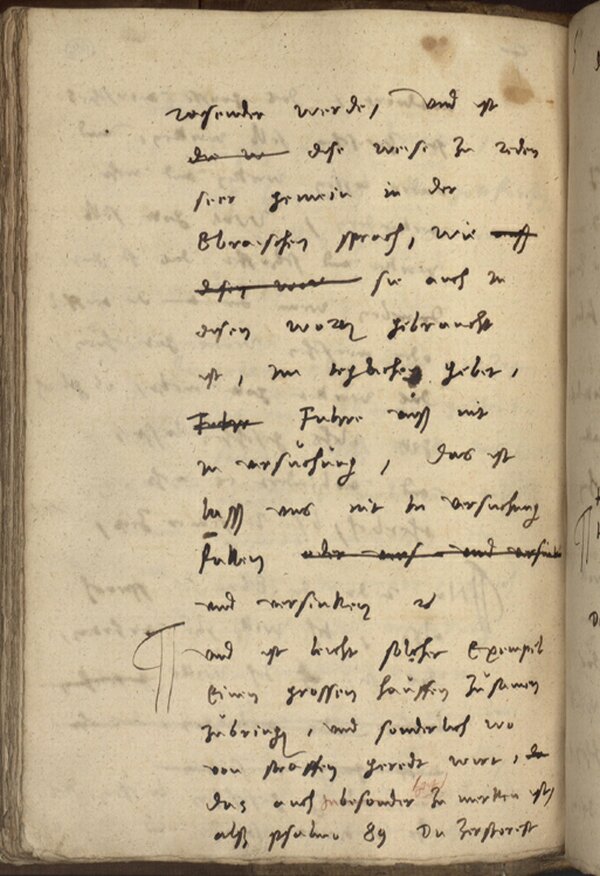 wesender werde, und ist
die w dise weise zu reden
seer gemein in der
Ebraeschen sprach, wie auff
disen wor sie auch in
disen worten gebraucht
ist, im teglichen gebet,
Fuhre Fuhre uns nit
in versuchung, das ist
lass uns nit in versuchung
fallen oder vers und versink
und versinken
und ist leicht solcher Exempel
Einen grossen hauffen zusamen
zubringen, und sonderlich wo
von straffen geredt wirt, da
das auch inbesonder zu merken ist,
alss psalmo 89 Du zerstorest